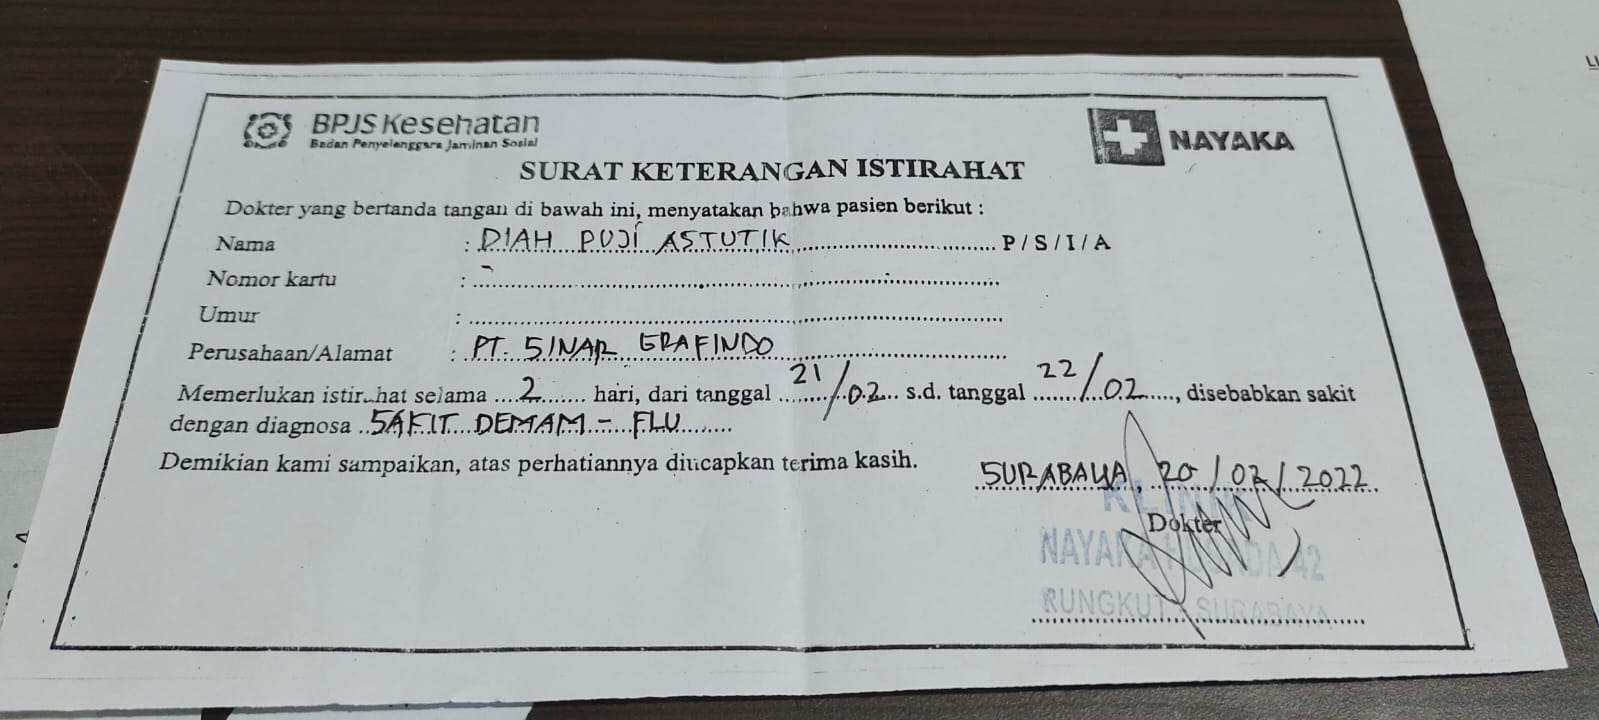 BPJS Kesehatan
Badan Penyelenggara Jaminan Sosial
NAYAKA
SURAT KETERANGAN ISTIRAHAT
Dokter yang bertanda tangan di bawah ini, menyatakan bahwa pasien berikut :
Nama : DIAH PUJI ASTUTIK P / S / I / A
Nomor kartu : -
Umur :
Perusahaan/Alamat : PT. SINAR GRAFINDO
Memerlukan istirahat selama 2 hari, dari tanggal 21/02 s.d. tanggal 22/02, disebabkan sakit
dengan diagnosa SAKIT DEMAM - FLU
Demikian kami sampaikan, atas perhatiannya diucapkan terima kasih.
SURABAYA, 20/02/2022
KLINIK
Dokter
NAYAKA HUSADA 42
RUNGKUT - SURABAYA